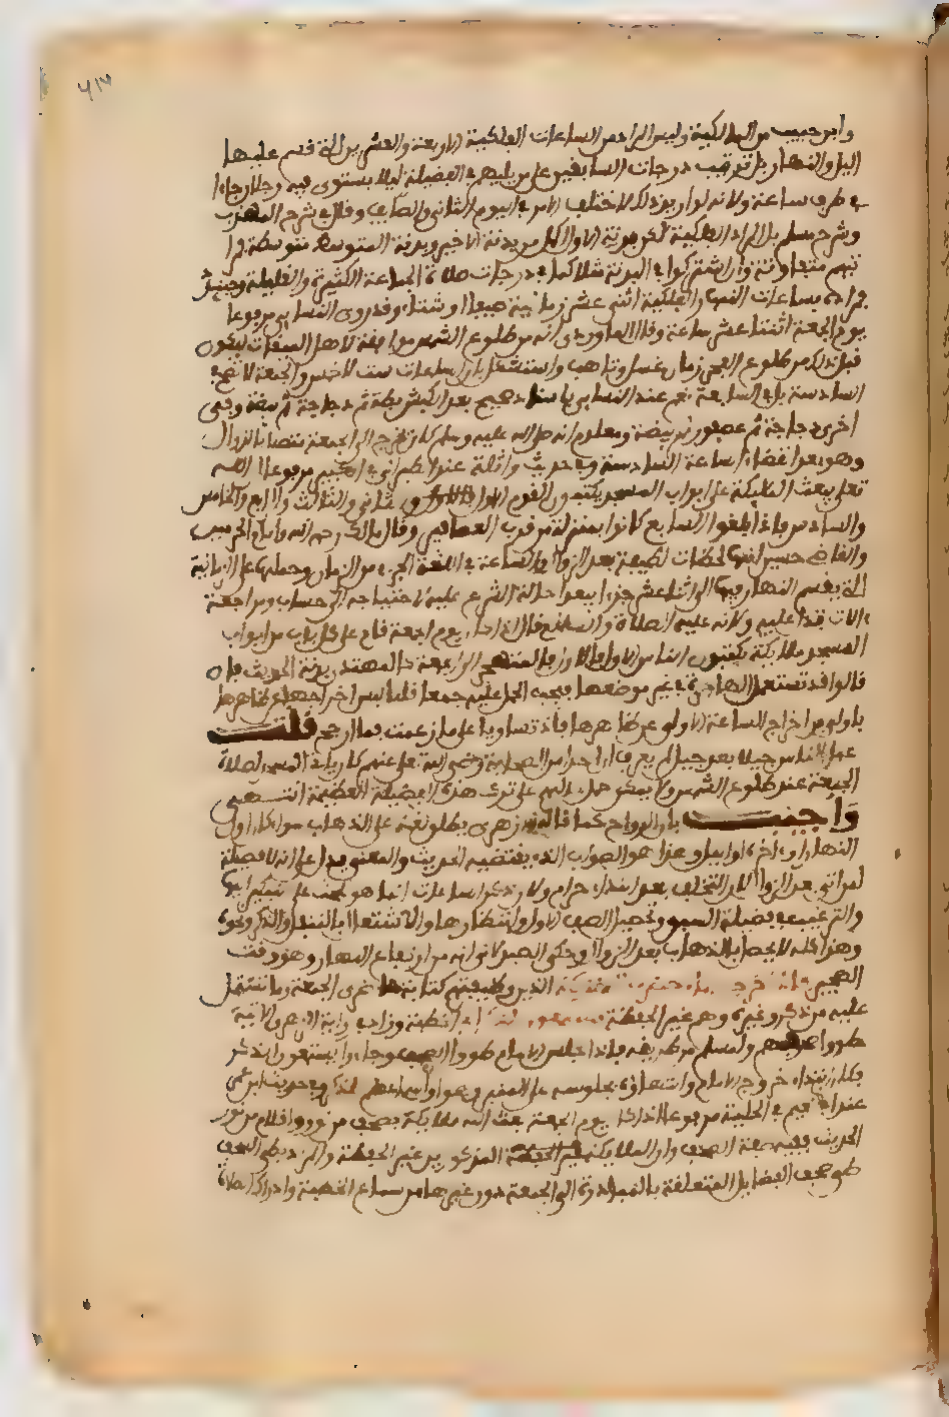 ٤١٧
وابن حبيب من المالكية وليس المراد من الساعات الفلكية الاربعة والعشرين التي قسم عليها
اليل والنهار بل ترتيب درجات السابقين على من يليهم في الفضيلة ليلا يستوي فيه رجلان جاءا
في طرفي ساعة ولانه لو اريد ذلك لاختلف الامر في اليوم الشاتي والصائف وقال في شرح المهذب
وشرح مسلم بل المراد الفلكية لكن بدنة الاول اكمل من بدنة الاخير وبدنة المتوسط متوسطة فمرا
تبهم متفاوتة وان اشتركوا في البدنة مثلا كما في درجات صلاة الجماعة الكثيرة والقليلة وحينئذ
فمراده بساعات النهار الفلكية اثنى عشر زمانية صيفا او شتاء وقد روى النساءي مرفوعا
يوم الجمعة اثنتا عشر ساعة وقال الماوردي انه من طلوع الشمس موافقة لاهل الميقات ليكون
قبل ذلك من طلوع الفجر زمان غسل وتاهب واستشكل بان الساعات ست لا خمس والجمعة لا تصح في
السادسة بل في السابعة نعم عند النسائي باسناد صحيح بعد الكبش بطة ثم دجاجة ثم بيضة وفي
اخرى دجاجة ثم عصفور ثم بيضة ومعلوم انه صلى الله عليه وسلم كان يخرج الى الجمعة متصلا بالزوال
وهو بعد انقضاء الساعة السادسة وفي حديث واثلة عند الطبراني في الكبير مرفوعا ان الله
تعلى يبعث الملائكة على ابواب المسجد يكتبون القوم الاول والثاني والثالث والرابع والخامس
والسادس فاذا بلغوا السابع كانوا بمنزلة من قرب العصافير وقال مالك رحمه الله وامام الحرمين
والقاضي حسين انها لحظات لطيفة بعد الزوال لان الساعة في اللغة الجزء من الزمان وحملها على الزمانية
التي يقسم النهار فيها الى اثنا عشر جزءا يبعد احالة الشرع عليه لاحتياجه الى حساب ومراجعة
الات تدل عليه ولانه عليه الصلاة والسلام قال اذا كان يوم الجمعة قام على كل باب من ابواب
المسجد ملائكة يكتبون الناس الاول فالاول فالمتهجر الى الجمعة كالمهتدي بدنة الحديث فان
قالوا قد تستعمل الهاجرة في غير موضعها فيجب الحمل عليه جمعا قلنا ليس اخراجها عن ظاهرها
باولى من اخراج الساعة الاولى عن ظاهرها فاذ تساويا على ما زعمت فما ارجح قلت
عمل الناس جيلا بعد جيل لم يعرف ان احدا من الصحابة رضي الله تعلى عنهم كان ياتي المسجد لصلاة
الجمعة عند طلوع الشمس ولا يمكن حمل حالهم على ترك هذه الفضيلة العظيمة انتهى
واجيب بان الرواح كما قاله الازهري يطلق لغة على الذهاب سوا كان اول
النهار او اخره او اليل وهذا هو الصواب الذي يقتضيه الحديث والمعنى فدل على انه لا فضيلة
لمن اتى بعد الزوال لان التخلف بعد النداء حرام ولان ذكر الساعات انما هو للحث على التبكير اليها
والترغيب في فضيلة السبق وتحصيل الصف الاول وانتظارها والاشتغال بالتنفل والذكر ونحوه
وهذا كله لا يحصل بالذهاب بعد الزوال وحكى الصيدلاني انه من ارتفاع النهار وهو وقت
الهجير فاذا خرج الامام حضرت الملائكة الذين وظيفتهم كتابة حاضري الجمعة وما تشتمل
عليه من ذكر وغيره وهم غير الحفظة يستمعون الذكر اي الخطبة وزاد في رواية الزهري الاتية
طووا صحفهم ولمسلم من طريقه فاذا جلس الامام طووا الصحف وجاءوا يستمعون الذكر
فكان ابتداء خروج الامام وانتهاؤه بجلوسه على المنبر وهو اول سماعهم للذكر وفي حديث ابن عمر
عند ابي نعيم في الحلية مرفوعا اذا كان يوم الجمعة بعث الله ملائكة بصحف من نور واقلام من نور
الحديث ففيه صفة الصحف وان الملائكة المذكورين غير الحفظة والمراد بطي الصحف
طي صحف الفضايل المتعلقة بالمبادرة الى الجمعة دون غيرها من سماع الخطبة وادراك الصلاة